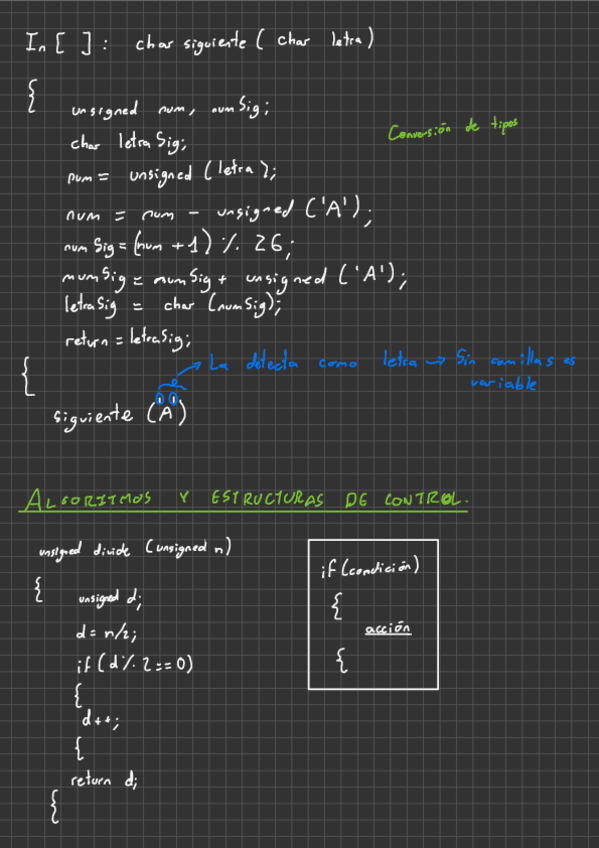 In [ ]: char siguiente ( char letra )
{
unsigned num, numSig;
Conversión de tipos
char letraSig;
num = unsigned (letra);
num = num - unsigned ('A');
numSig = (num + 1) % 26;
numSig = numSig + unsigned ('A');
letraSig = char (numSig);
return = letraSig;
{
La detecta como letra → Sin comillas es
variable
siguiente ('A')
ALGORITMOS Y ESTRUCTURAS DE CONTROL.
unsigned divide (unsigned n)
{
unsigned d;
d = n/2;
if (d % 2 == 0)
{
d++;
{
return d;
{
if (condición)
{
acción
{